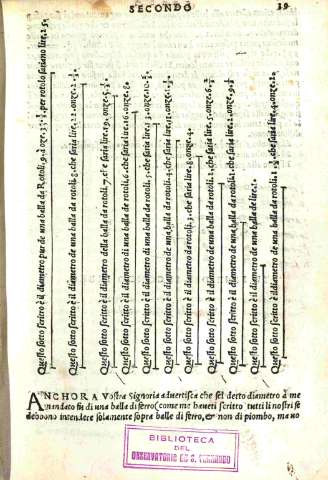 SECONDO 39
Questo sotto scritto è il diametro pur de una balla da Rotoli. 9. & onze. per rotolo sariano lire. 25.
Questo sotto scritto è il diametro de una balla da rotoli. 8. che saria lire, 22. onze. 2
Questo sotto scritto è il diametro della balla da rotoli. 7. che saria lire. 19. onze. 5.
Questo sotto scritto è il diametro di una balla da rotoli. 6. che saria lire. 16. onze. 8
Questo sotto scritto è il diametro di una balla da rotoli. 5. che saria lire. 13. onze. 10.
Questo sotto scritto è il diametro de una balla da rotoli. 4. che saria lire. 11. onze.
Questo sotto scritto è il diametro di una balla da rotoli. 3. che saria lire. 8. onze. 4.
Questo sotto scritto è il diametro de una balla da rotoli. 2. che saria lire. 5. onze. 6.
Questo sotto scritto è il diametro de una balla da rotoli. 1. che saria lire. 2. onze. 9.
Questo sotto scritto è il diametro di una balla de lire. 2.
Questo sotto scritto è il diametro de una balla da rotoli. che saria lire. 4. onze. 2
ANCHORA Vostra Signoria aduertisca che sel detto diametro à me
mandato sia di una balla di ferro (come me haueti scritto) tutti li nostri se
debbono intendere solamente sopra balle di ferro, & non di piombo, ma uo
BIBLIOTECA
DEL
OBSERVATORIO DE S. FERNANDO